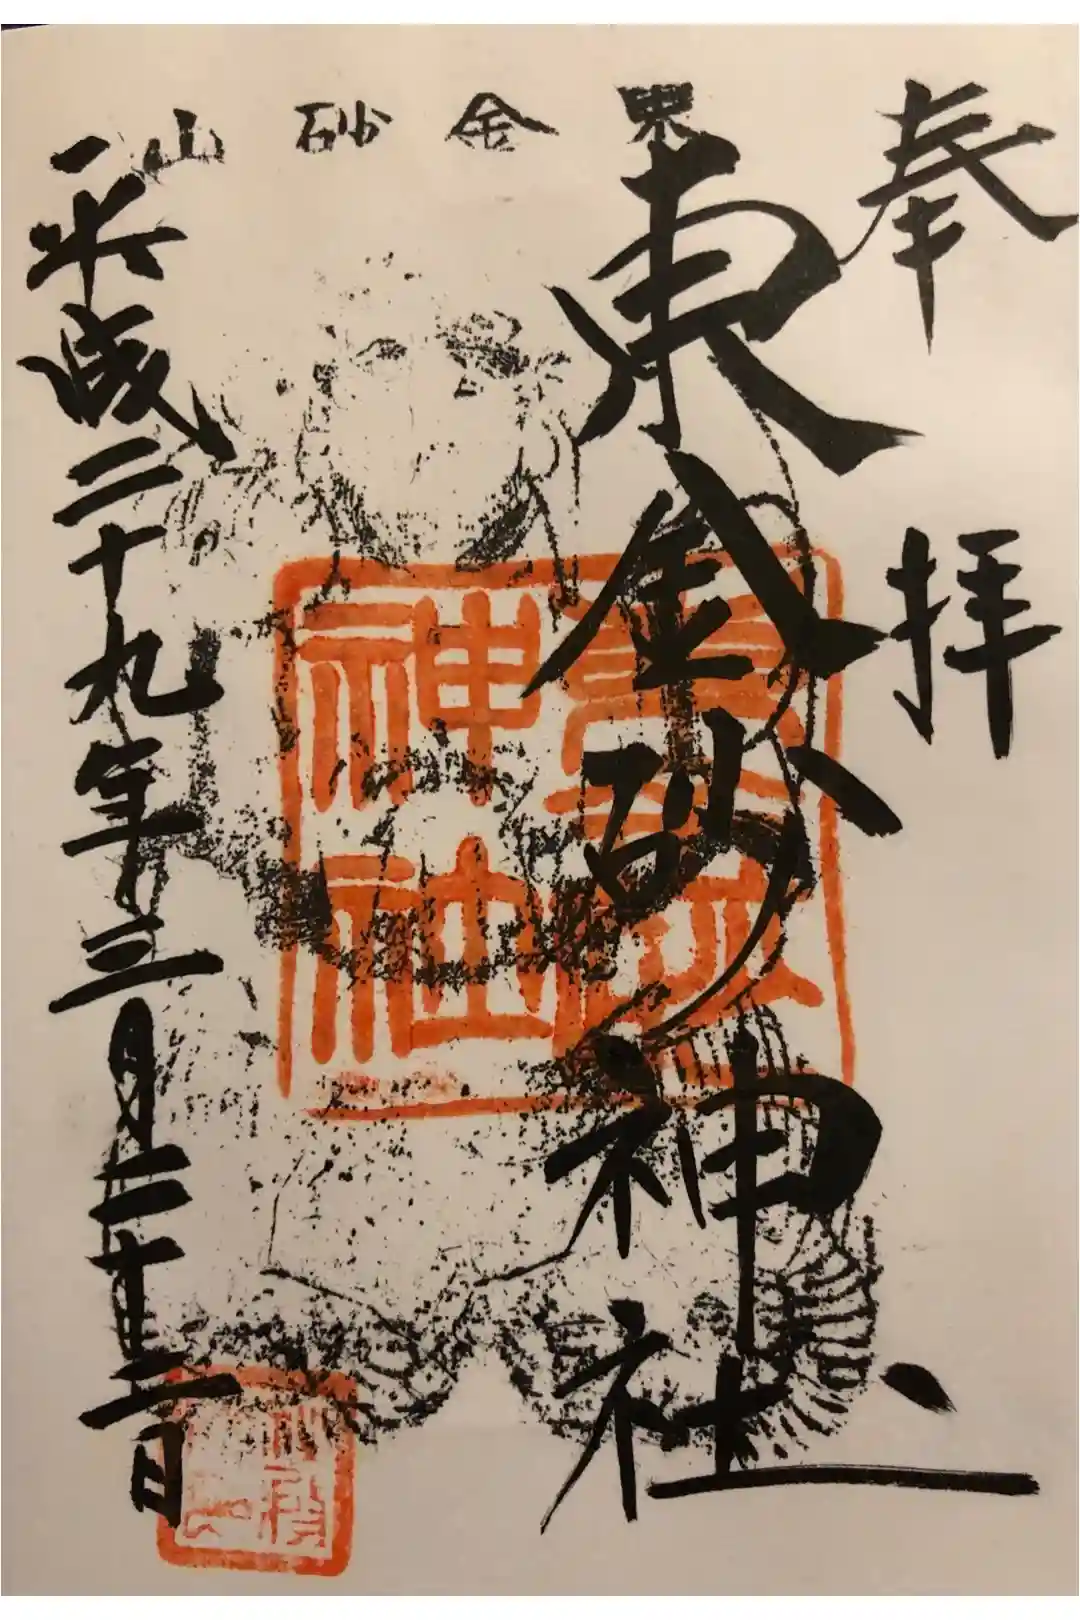 東金砂山
奉拝
東金砂神社
平成二十九年三月二十二日
神社